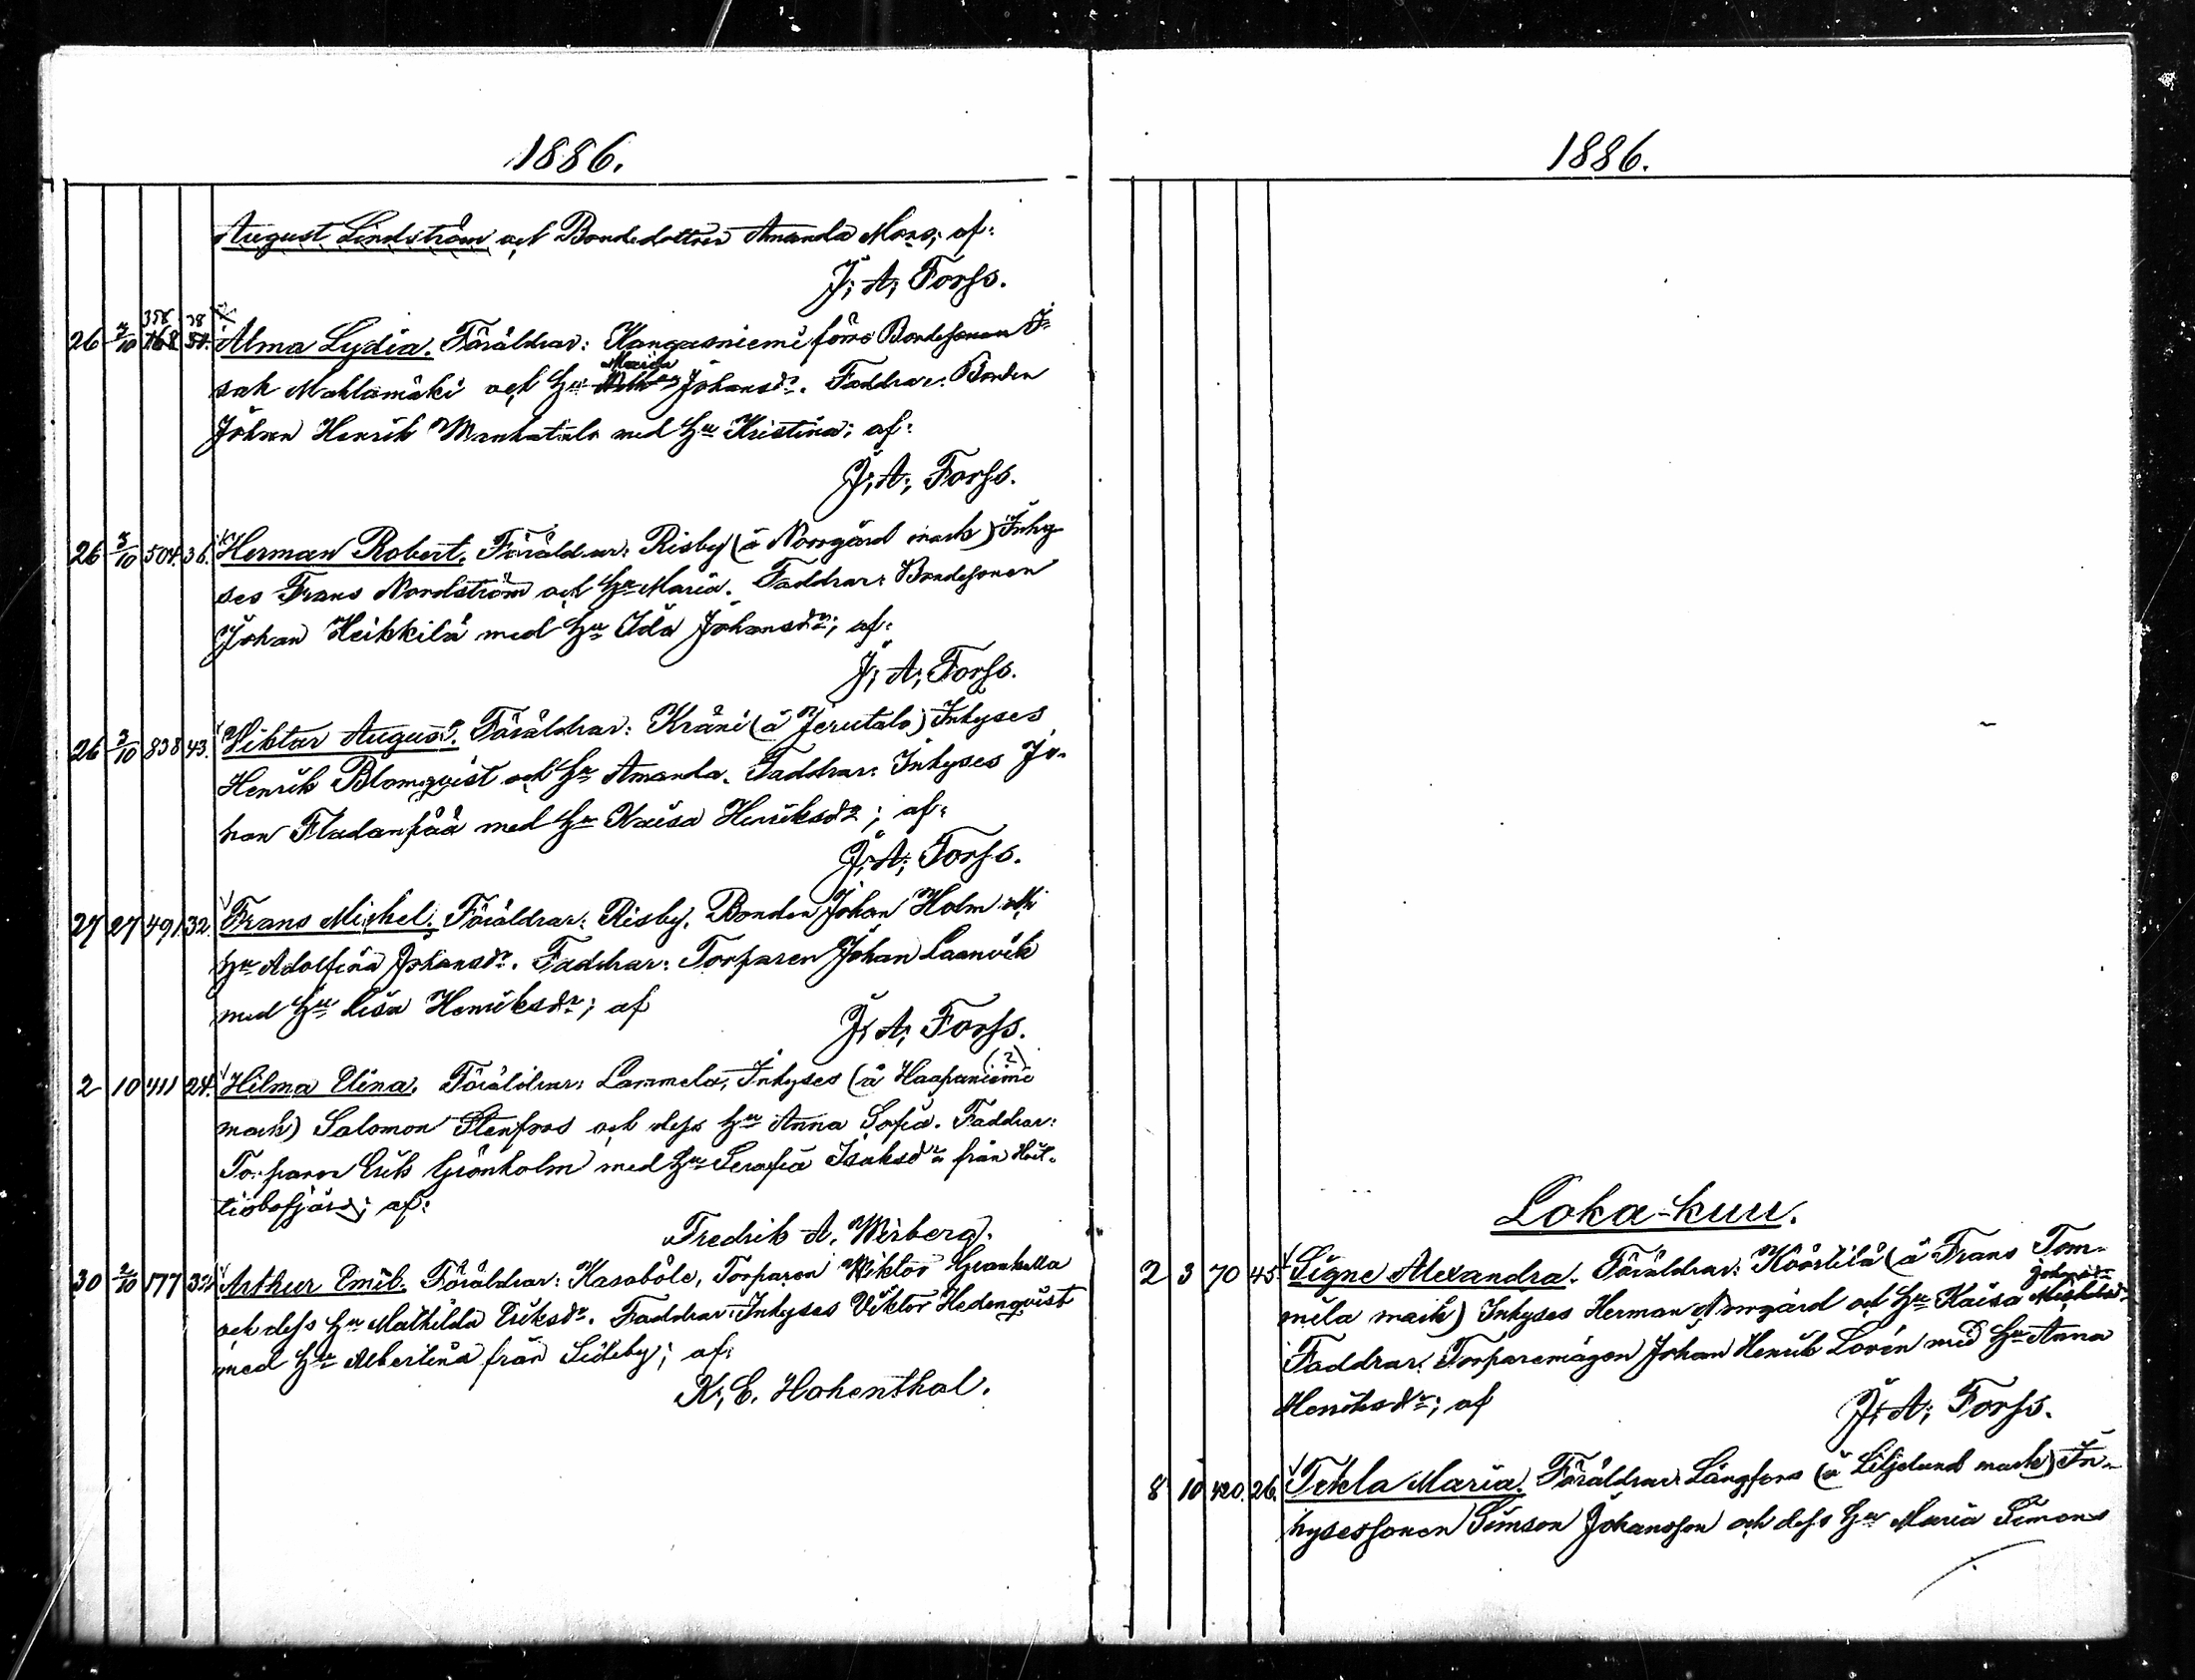 1886.
August Lindström och Bondedottren Amanda Mons; af:
J; A; Forss.
358 38
26 3/10 168 51. Alma Lydia. Föräldrar: Kangasniemi förre Bondesonen I-
Maria
sak Mahlamäki och Hu Johansdr. Faddrar: Bonden
Johan Henrik Wanhatalo med Hu Kristina; af:
J; A; Forss.
26 3/10 504. 36. Herman Robert. Föräldrar: Risby (å Norrgård mark) Inhy-
ses Frans Nordström och Hu Maria. Faddrar: Bondesonen
Johan Heikkilä med Hu Ida Johansdr; af:
J; A; Forss.
26 3/10 838 43. Viktor August. Föräldrar: Kräni (å Jerutalo) Inhyses
Henrik Blomqvist och Hu Amanda. Faddrar: Inhyses Jo-
han Fladanpää med Hu Kaisa Henriksdr; af:
J; A; Forss.
27 27 491 32. Frans Mickel. Föräldrar: Risby. Bonden Johan Holm och
Hu Adolfina Johansdr. Faddrar: Torparen Johan Laanvik
med Hu Lisa Henriksdr; af
J; A; Forss.
(?)
2 10 411 24. Hilma Elina. Föräldrar: Lammela, Inhyses (å Haapaniemi
mark) Salomon Stenfors och dess Hu Anna Sofia. Faddrar:
Torparen Erik Grönholm med Hu Serafia Isaksdr från
af:
Fredrik A. Wirberg.
30 2/10 177 32 Arthur Emil. Föräldrar: Kasaböle, Torparen Wiktor Grankulla
och dess Hu Mathilda Eriksdr. Faddrar: Inhyses Viktor Hedenqvist
med Hu Albertina från Sideby; af:
K; E. Hohenthal.
1886.
Loka-kuu.
2 3 70 45. Signe Alexandra. Föräldrar: Köörtilä (å Frans Tom-
Johansdr
mila mark) Inhyses Herman Norrgård och Hu Kaisa Mickelsdr
Faddrar: Torparemågen Johan Henrik Lorén med Hu Anna
Henriksdr; af J; A; Forss.
8 10 420. 26. Tekla Maria. Föräldrar: Långfors (å Liljelund mark) In-
hysessonen Simson Johansson och dess Hu Maria Simons